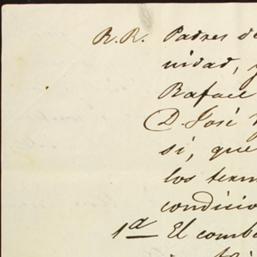 R.R. Padres de
nidad, y
Rafael
D. José
si, que
los term
condicio
1ª El comb